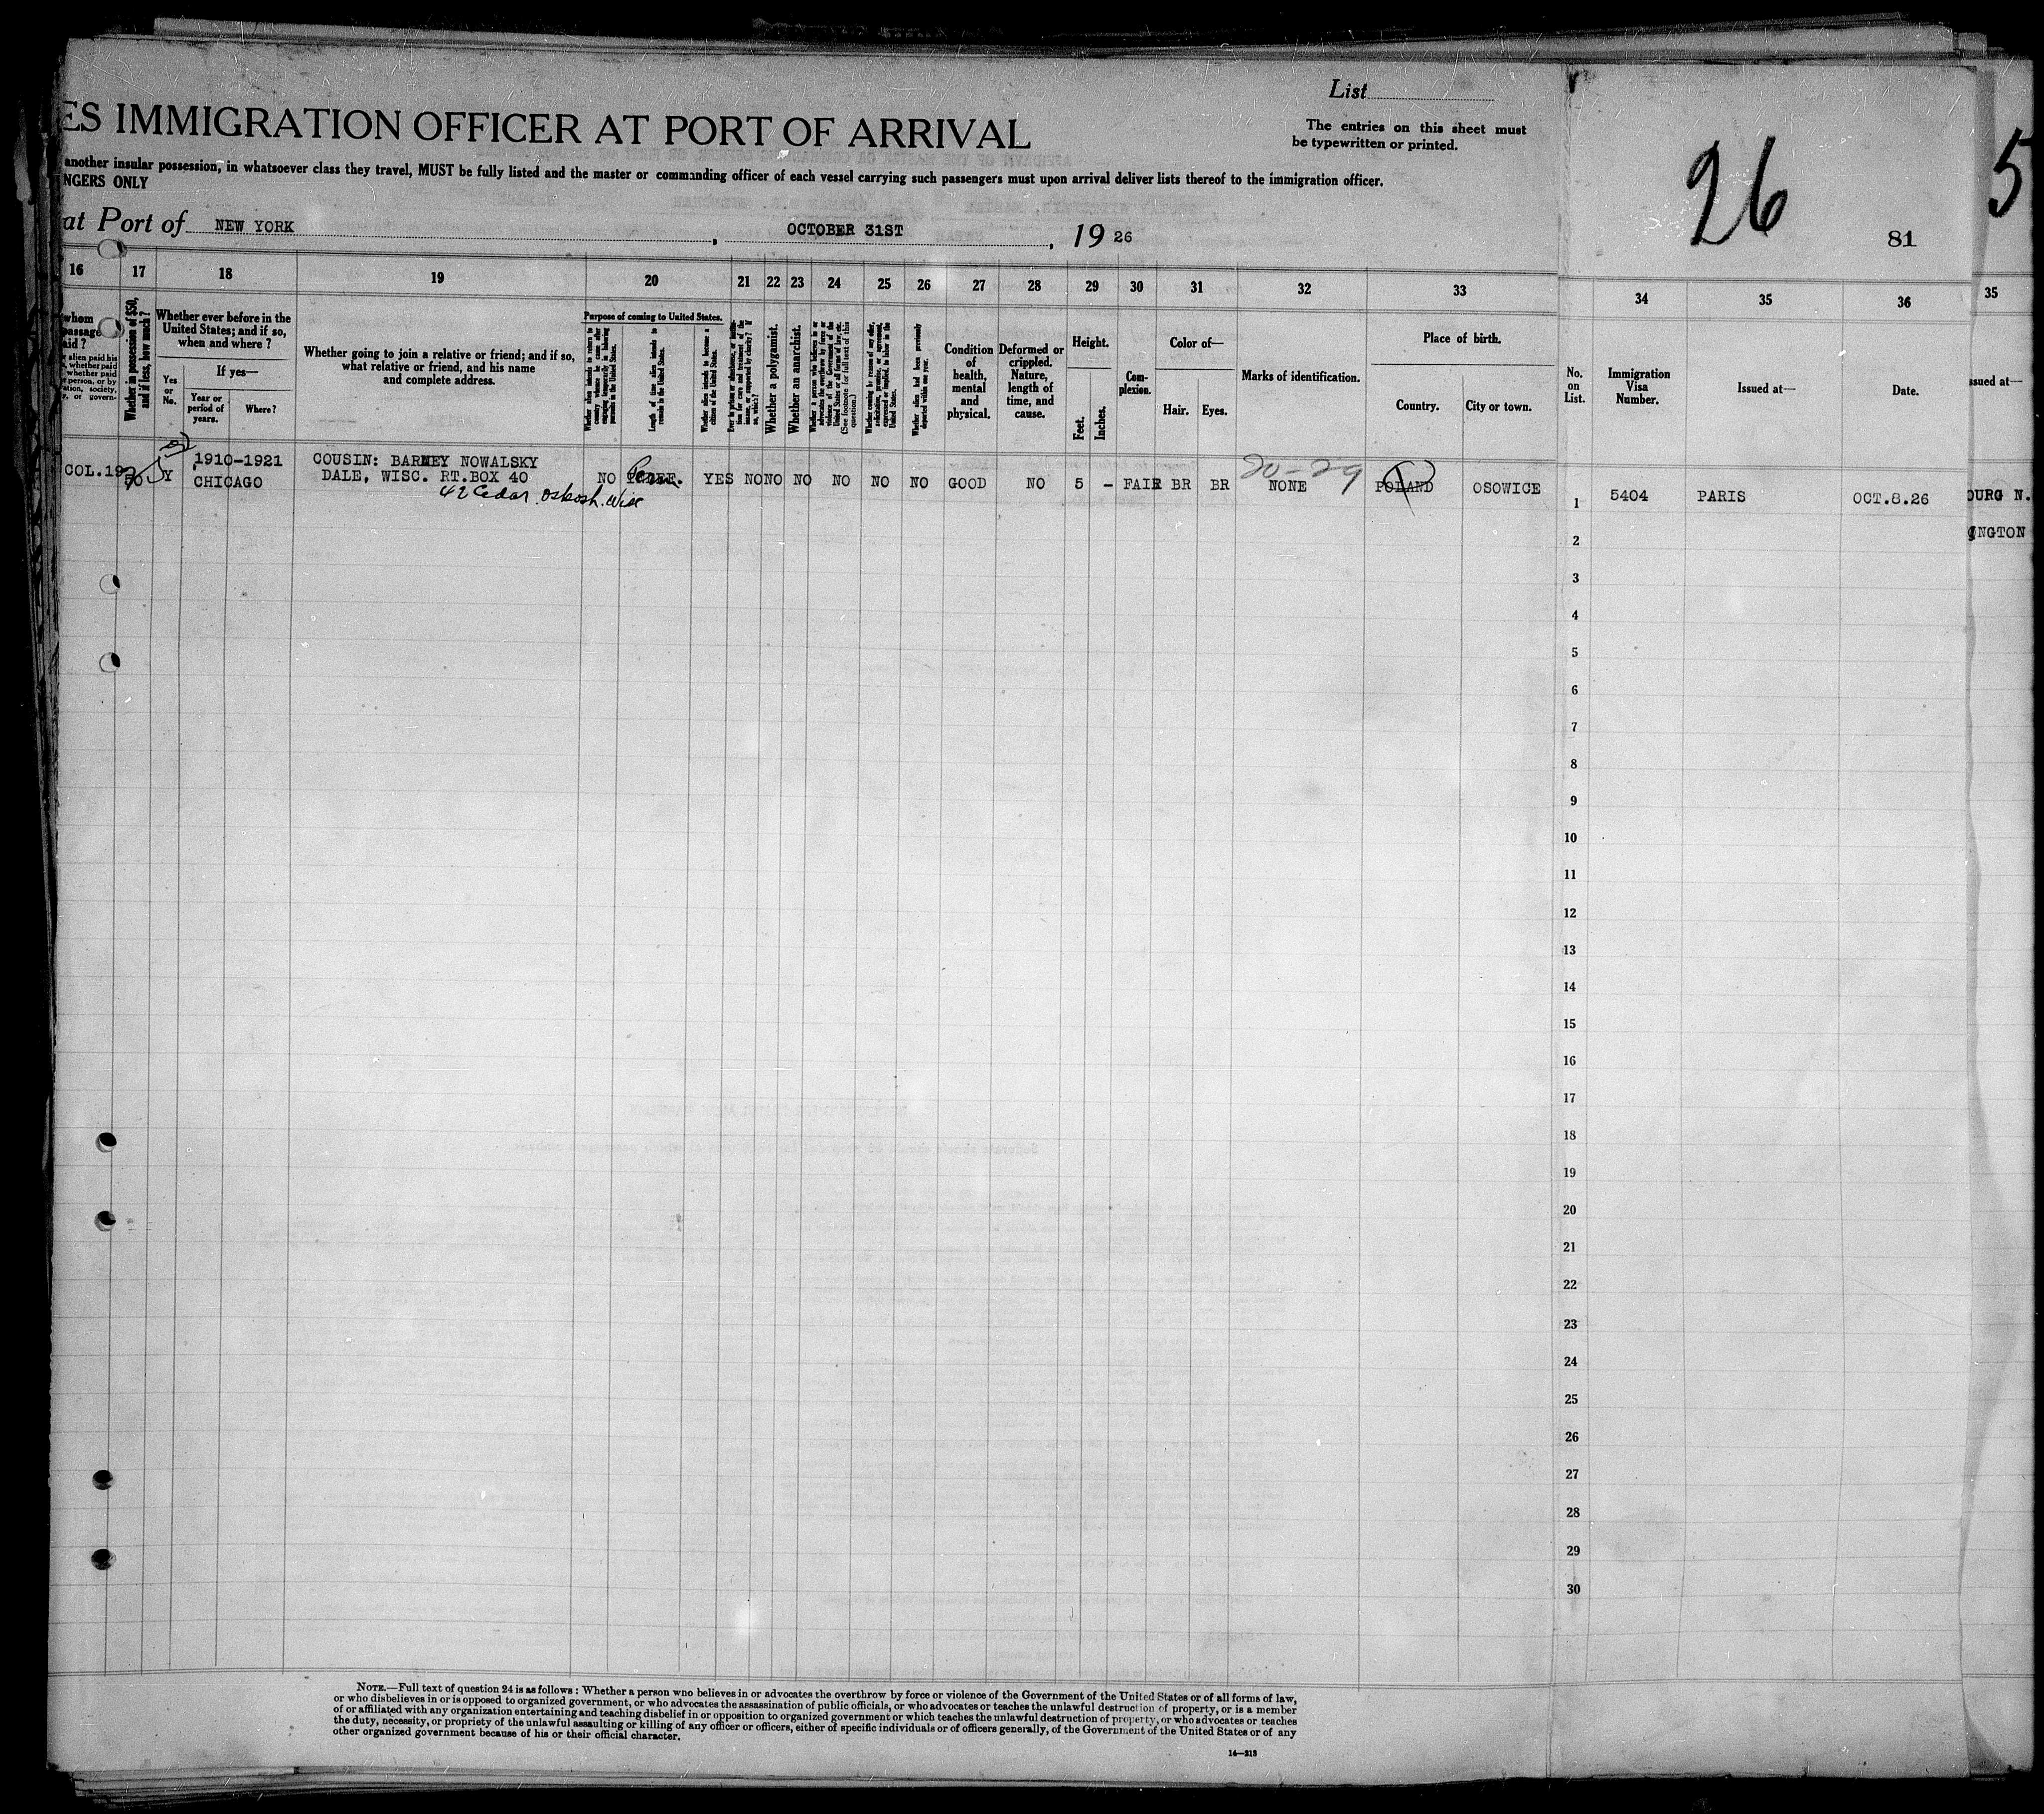 List
ES IMMIGRATION OFFICER AT PORT OF ARRIVAL
The entries on this sheet must
be typewritten or printed.
another insular possession, in whatsoever class they travel, MUST be fully listed and the master or commanding officer of each vessel carrying such passengers must upon arrival deliver lists thereof to the immigration officer.
NGERS ONLY
at Port of NEW YORK, OCTOBER 31ST, 19 26
26
81
5
16 17 18 19 20 21 22 23 24 25 26 27 28 29 30 31 32 33 34 35 36 35
whom
passage
aid ?
r alien paid his
, whether paid
whether paid
r person, or by
ation, society,
y, or govern-
Whether in possession of $50,
and if less, how much ?
Whether ever before in the
United States; and if so,
when and where ?
Yes
or
No.
If yes—
Year or
period of
years.
Where?
Whether going to join a relative or friend; and if so,
what relative or friend, and his name
and complete address.
Purpose of coming to United States.
Whether alien intends to return to
country whence he came after
engaging temporarily in laboring
pursuits in the United States.
Length of time alien intends to
remain in the United States.
Whether alien intends to become a
citizen of the United States.
Whether a polygamist.
Whether an anarchist.
(See footnote for full text of this
question.)
Whether alien had been previously
deported within one year.
Condition
of
health,
mental
and
physical.
Deformed or
crippled.
Nature,
length of
time, and
cause.
Height.
Feet.
Inches.
Com-
plexion.
Color of—
Hair.
Eyes.
Marks of identification.
Place of birth.
Country.
City or town.
No.
on
List.
Immigration
Visa
Number.
Issued at—
Date.
ssued at—
COL.19
50
Y
1910-1921
CHICAGO
COUSIN: BARNEY NOWALSKY
DALE, WISC. RT.BOX 40
42 Cedar. Oskosh. Wisc
NO YES NO NO NO NO NO NO GOOD NO 5 - FAIR BR BR NONE POLAND OSOWICE
20-29
1 5404 PARIS OCT.8.26
OURG N.
NGTON
2
3
4
5
6
7
8
9
10
11
12
13
14
15
16
17
18
19
20
21
22
23
24
25
26
27
28
29
30
NOTE.—Full text of question 24 is as follows: Whether a person who believes in or advocates the overthrow by force or violence of the Government of the United States or of all forms of law,
or who disbelieves in or is opposed to organized government, or who advocates the assassination of public officials, or who advocates or teaches the unlawful destruction of property, or is a member
of or affiliated with any organization entertaining and teaching disbelief in or opposition to organized government or which teaches the unlawful destruction of property, or who advocates or teaches
the duty, necessity, or propriety of the unlawful assaulting or killing of any officer or officers, either of specific individuals or of officers generally, of the Government of the United States or of any
other organized government because of his or their official character.
14—213